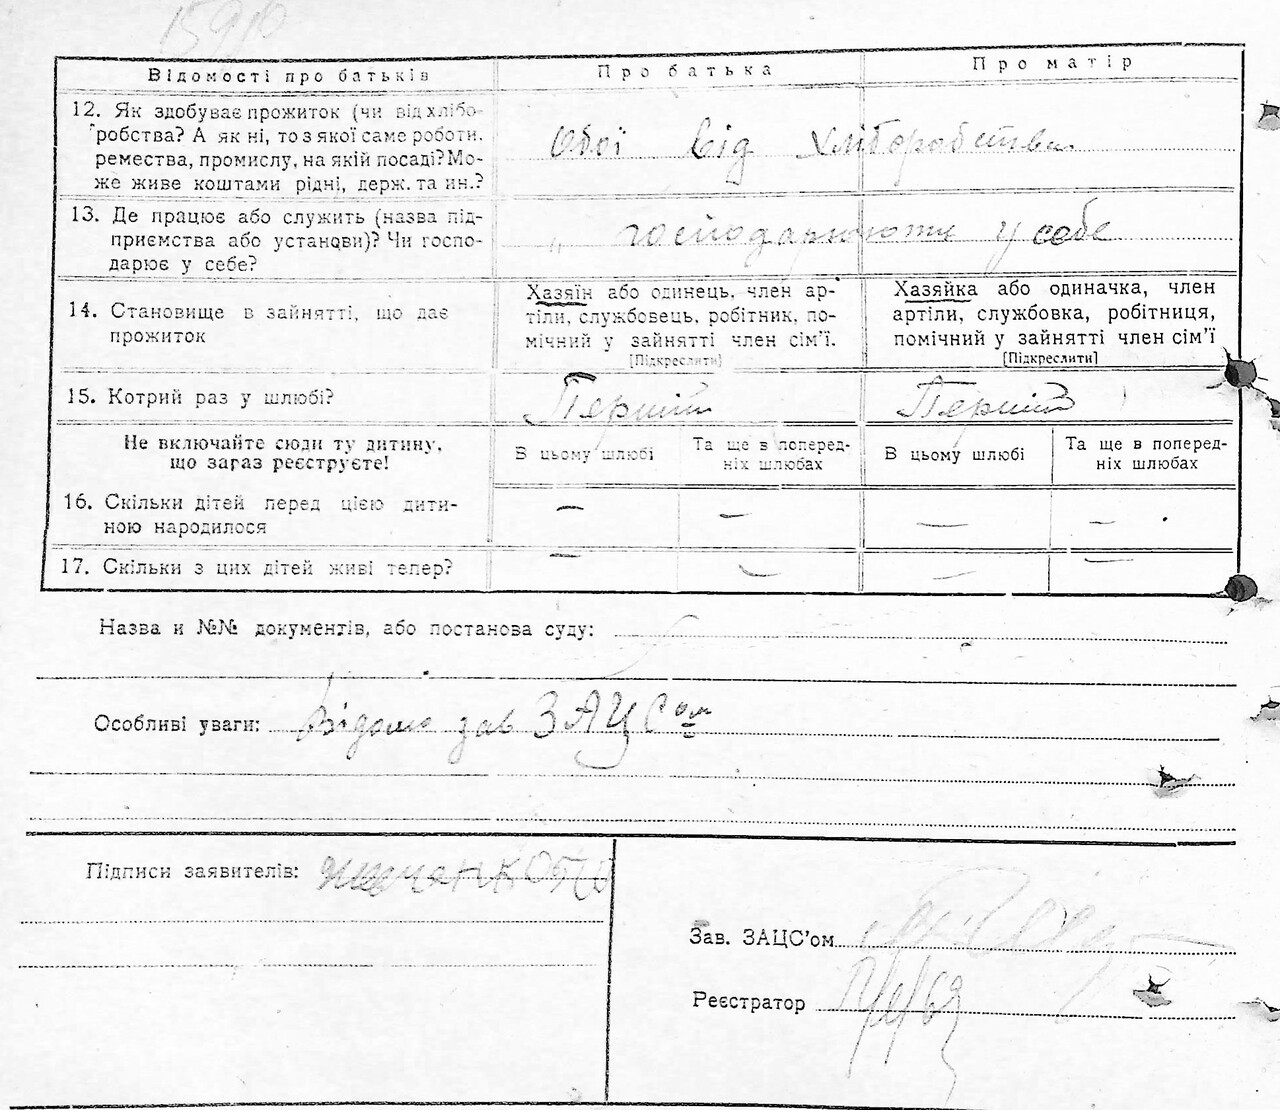 Відомості про батьків Про батька Про матір
12. Як здобуває прожиток (чи від хлібо-
робства? А як ні, то з якої саме роботи,
ремества, промислу, на якій посаді? Мо-
же живе коштами рідні, держ. та ин.?
Обої від хліборобства
13. Де працює або служить (назва під-
приємства або установи)? Чи госпо-
дарює у себе?
„ господарюють у себе
14. Становище в зайнятті, що дає
прожиток
Хазяїн або одинець, член ар-
тіли, службовець, робітник, по-
мічний у зайнятті член сім’ї.
[Підкреслити]
Хазяйка або одиначка, член
артіли, службовка, робітниця,
помічний у зайнятті член сім’ї
[Підкреслити]
15. Котрий раз у шлюбі? Перший Перший
Не включайте сюди ту дитину,
що зараз реєструєте!
В цьому шлюбі
Та ще в поперед-
ніх шлюбах
В цьому шлюбі
Та ще в поперед-
ніх шлюбах
16. Скільки дітей перед цією дити-
ною народилося
— — — —
17. Скільки з цих дітей живі тепер? — — — —
Назва и №№ документів, або постанова суду:
Особливі уваги: Відомо зав ЗАЦСом
Підписи заявителів:
Зав. ЗАЦС’ом
Реєстратор